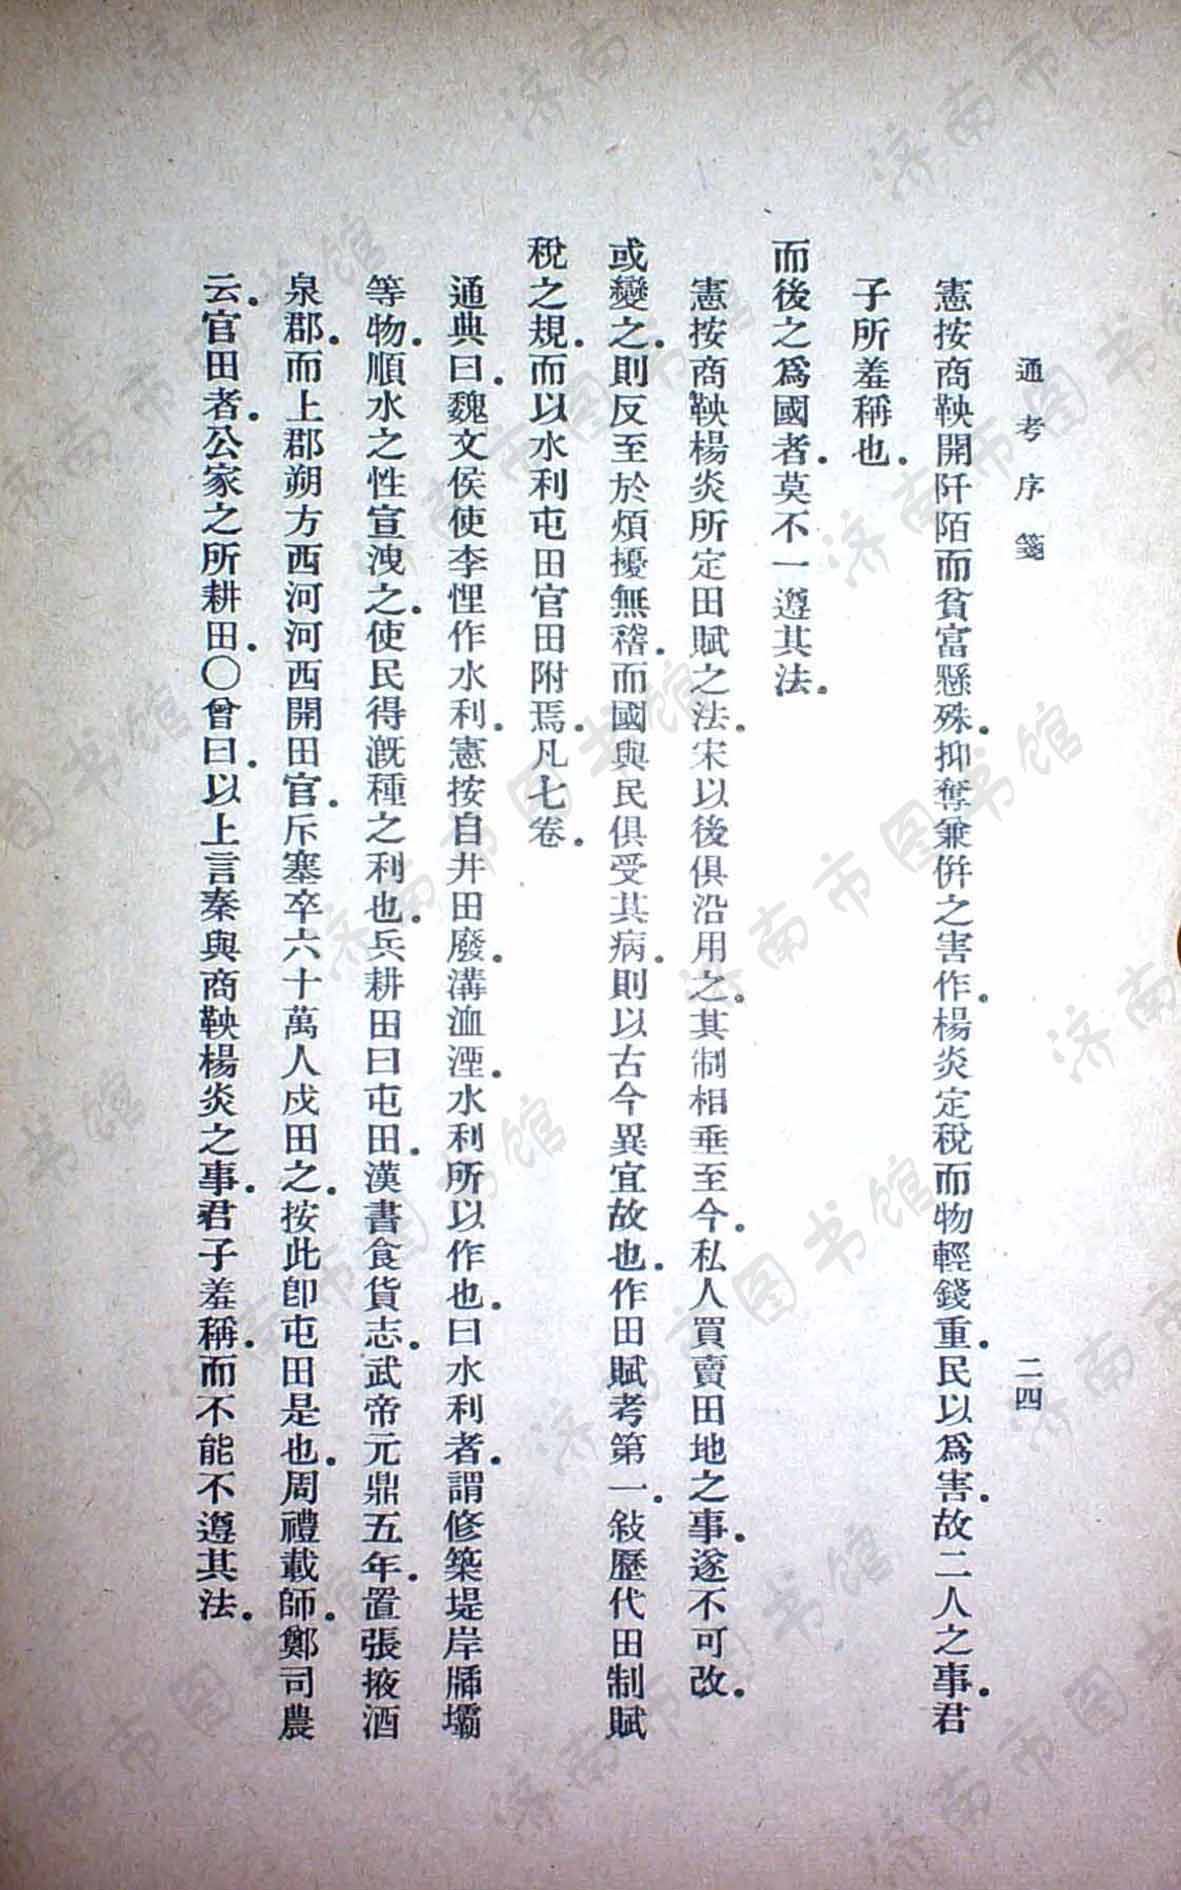 通考序箋
二四
憲按商鞅開阡陌而貧富懸殊.抑奪兼併之害作.楊炎定稅而物輕錢重.民以爲害.故二人之事.君
子所羞稱也.
而後之爲國者.莫不一遵其法.
憲按商鞅楊炎所定田賦之法.宋以後俱沿用之.其制相垂至今.私人買賣田地之事.遂不可改.
或變之.則反至於煩擾無稽.而國與民俱受其病.則以古今異宜故也.作田賦考第一.敍歷代田制賦
稅之規.而以水利屯田官田附焉.凡七卷.
通典曰.魏文侯使李悝作水利.憲按自井田廢.溝洫湮.水利所以作也.曰水利者.謂修築堤岸牐壩
等物.順水之性宣洩之.使民得漑種之利也.兵耕田曰屯田.漢書食貨志.武帝元鼎五年.置張掖酒
泉郡.而上郡朔方西河河西開田官.斥塞卒六十萬人戍田之.按此卽屯田是也.周禮載師.鄭司農
云.官田者.公家之所耕田.〇曾曰.以上言秦與商鞅楊炎之事.君子羞稱.而不能不遵其法.
济南市图书馆